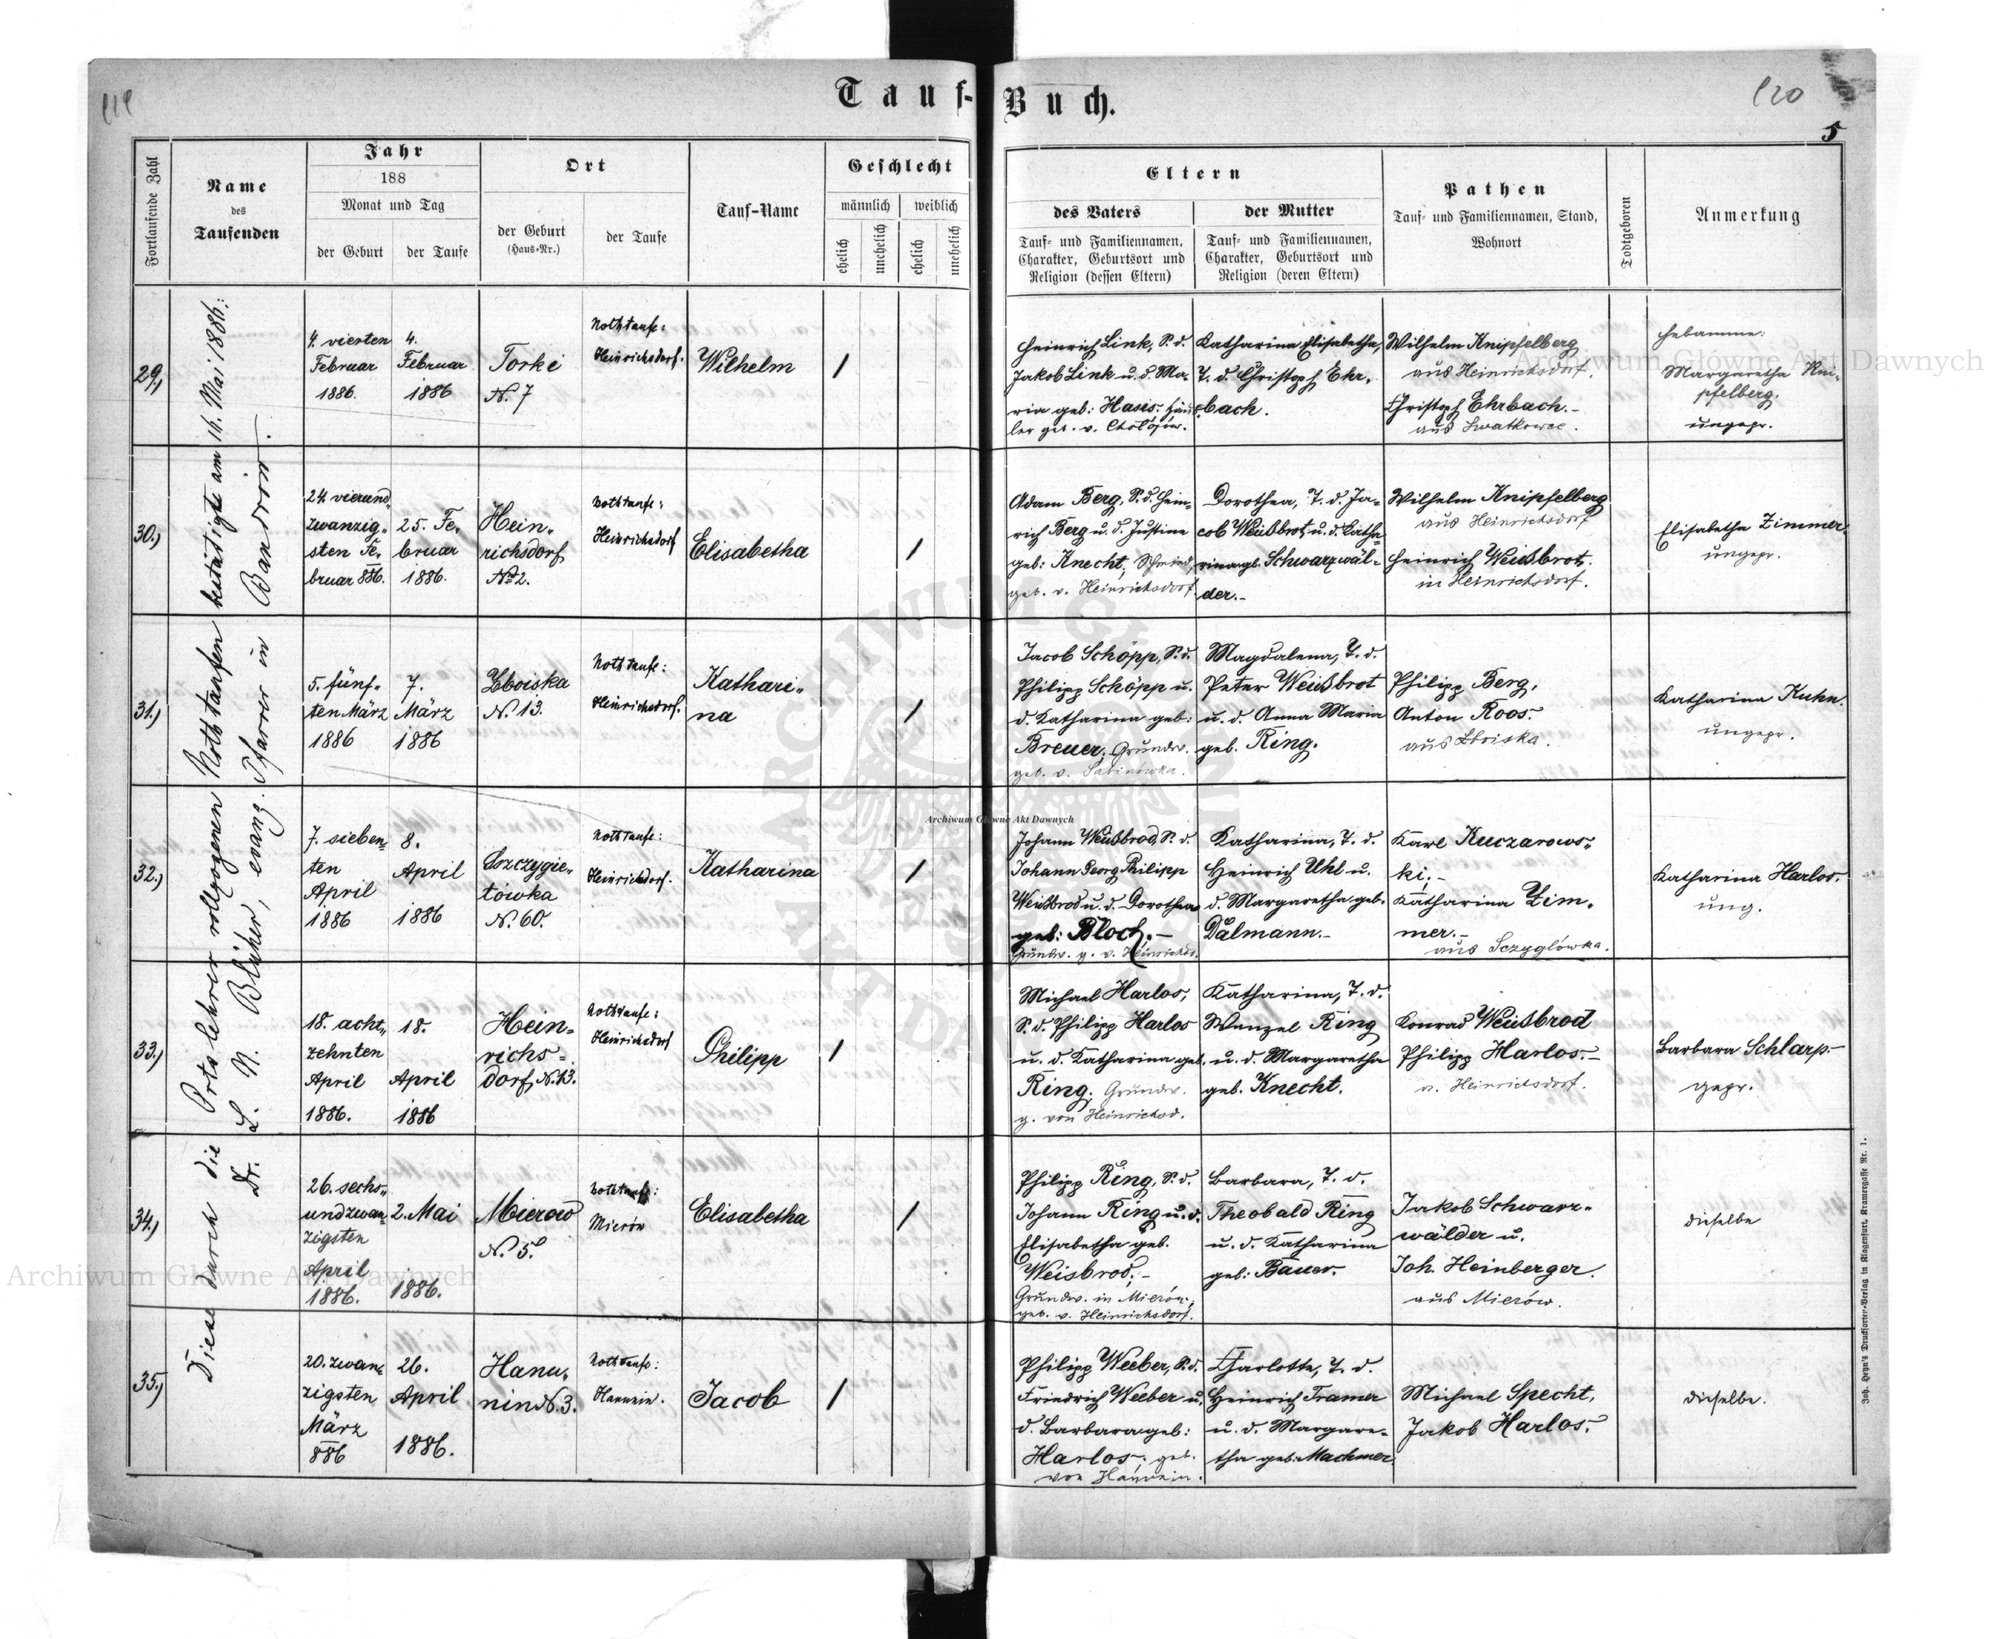 119
120
Tauf-Buch.
5
Fortlaufende Zahl
Name
des
Taufenden
Jahr
188
Monat und Tag
der Geburt
der Taufe
Ort
der Geburt
(Haus-Nr.)
der Taufe
Tauf-Name
Geschlecht
männlich
weiblich
ehelich
unehelich
ehelich
unehelich
Eltern
des Vaters
Tauf- und Familiennamen,
Charakter, Geburtsort und
Religion (dessen Eltern)
der Mutter
Tauf- und Familiennamen,
Charakter, Geburtsort und
Religion (deren Eltern)
Pathen
Tauf- und Familiennamen, Stand,
Wohnort
Todtgeboren
Anmerkung
Diese durch die Ortslehrer vollzogenen Nothtaufen bestätigte am 16. Mai 1886:
Dr. L. N. Blüher, evang. Pfarrer in Bandrów.
29.)
4. vierten
Februar
1886.
4.
Februar
1886
Torki
N. 7
Nothtaufe:
Heinrichsdorf.
Wilhelm
/
Heinrich Link, S. d.
Jakob Link u. d. Ma-
ria geb: Hasis. Häus-
ler geb. v. Chołojów.
Katharina Elisabetha,
T. d. Christoph Ehr-
bach.
Wilhelm Knipfelberg
aus Heinrichsdorf.
Christoph Ehrbach.-
aus
Hebamme:
Margaretha Kni-
pfelberg.
ungepr.
30.)
24. vierund-
zwanzig-
sten Fe-
bruar 886.
25. Fe-
bruar
1886.
Hein-
richsdorf
No 2.
Nothtaufe:
Heinrichsdorf
Elisabetha
/
Adam Berg, S. d. Hein-
rich Berg u. d. Justine
geb: Knecht, Schmied,
geb. v. Heinrichsdorf.
Dorothea, T. d. Ja-
cob Weißbrot u. d. Katha-
rina gb. Schwarzwäl-
der.-
Wilhelm Knipfelberg
aus Heinrichsdorf
Heinrich Weißbrot.
in Heinrichsdorf.
Elisabetha Zimmer.
ungepr.
31.)
5. fünf-
ten März
1886
7.
März
1886
Zboiska
N. 13.
Nothtaufe:
Heinrichsdorf.
Kathari-
na
/
Jacob Schöpp, S. d.
Philipp Schöpp u.
d. Katharina geb:
Breuer. Grundw.
geb. v. Sabinówka.
Magdalena, T. d.
Peter Weißbrot
u. d. Anna Maria
geb. Ring.
Philipp Berg,
Anton Roos.
aus Zboiska.
Katharina Kuhn.
ungepr.
32.)
7. sieben-
ten
April
1886
8.
April
1886
Szczygie-
łówka
N. 60.
Nothtaufe:
Heinrichsdorf.
Katharina
/
Johann Weißbrod, S. d.
Johann Georg Philipp
Weißbrod u. d. Dorothea
geb: Bloch.-
Grundw. g. v. Heinrichsd.
Katharina, T. d.
Heinrich Uhl u.
d. Margaretha geb.
Dalmann.-
Karl Kuczarows-
ki.-
Katharina Zim-
mer.-
aus Sczyglówka.
Katharina Harlos.
ung.
33.)
18. acht-
zehnten
April
1886.
18.
April
1886
Hein-
richs-
dorf N. 13.
Nothtaufe:
Heinrichsdorf
Philipp
/
Michael Harlos,
S. d. Philipp Harlos
u. d. Katharina geb.
Ring. Grundw.
g. von Heinrichsd.
Katharina, T. d.
Wenzel Ring
u. d. Margaretha
geb. Knecht.
Konrad Weißbrod
Philipp Harlos.-
a. Heinrichsdorf.
Barbara Schlarp.-
gepr.
34.)
26. sechs-
undzwan-
zigsten
April
1886.
2. Mai
1886.
Mierow
N. 5.
Nothtaufe:
Mierów
Elisabetha
/
Philipp Ring, S. d.
Johann Ring u. d.
Elisabetha geb.
Weisbrod.-
Grundw. in Mierów,
geb. v. Heinrichsdorf.
Barbara, T. d.
Theobald Ring
u. d. Katharina
geb: Bauer.
Jakob Schwarz-
wälder u.
Joh. Heinberger.
aus Mierów.
dieselbe
35.)
20. zwan-
zigsten
März
886
26.
April
1886.
Hanu-
nin N. 3.
Nothtaufe:
Hanunin.
Jacob
/
Philipp Weeber, S. d.
Friedrich Weeber u.
d. Barbara geb:
Harlos. geb.
von Hanunin.
Charlotte, T. d.
Heinrich Tramer
u. d. Margare-
tha geb: Machmer
Michael Specht,
Jakob Harlos.-
dieselbe.
Joh. Heyn's Drucksorten-Verlag in Klagenfurt, Kramergasse Nr. 1.
Archiwum Główne Akt Dawnych
Archiwum Główne Akt Dawnych
Archiwum Główne Akt Dawnych